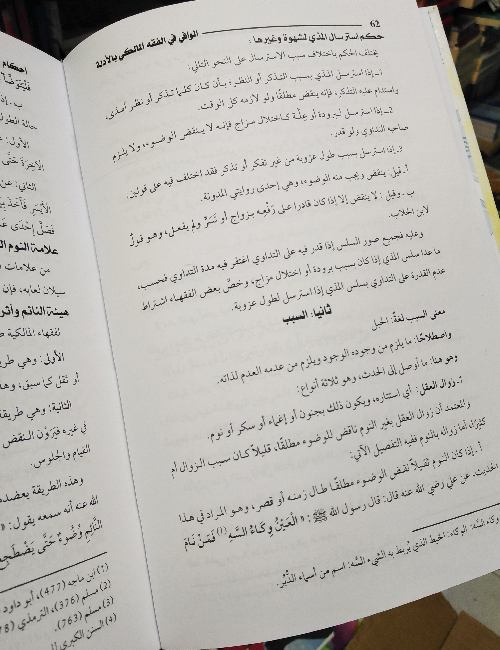 62
الوافي في الفقه المالكي بالأدلة
حكم استرسال المذي لشهوة وغيرها:
يختلف الحكم باختلاف سبب الاسترسال على النحو التالي:
1- إذا استرسل المذي بسبب التذكر أو النظر، بأن كان كلما تذكر أو نظر أمذى،
واستدام عليه التذكر، فإنه ينقض مطلقًا ولو لازمه كل الوقت.
2- إذا استرسل لبرودة أو علّة كاختلال مزاج فإنه لا ينقض الوضوء، ولا يلزم
صاحبه التداوي ولو قدر.
3- إذا استرسل بسبب طول عزوبة من غير تفكر أو تذكر فقد اختلف فيه على قولين:
أ- قيل: ينقض ويجب منه الوضوء، وهي إحدى روايتي المدونة.
ب- وقيل: لا ينقض إلا إذا كان قادرا على رفعه بزواج أو تسرٍّ ولم يفعل، وهو قولٌ
لابن الجلاب.
وعليه فجميع صور السلس إذا قدر فيه على التداوي اغتفر فيه مدة التداوي فحسب،
ما عدا سلس المذي إذا كان بسبب برودة أو اختلال مزاج، وخصَّ بعض الفقهاء اشتراط
عدم القدرة على التداوي بسلس المذي إذا استرسل لطول عزوبة.
ثانيا: السبب
معنى السبب لغةً: الحبل
واصطلاحًا: ما يلزم من وجوده الوجود ويلزم من عدمه العدم لذاته.
وهو هنا: ما أوصل إلى الحدث، وهو ثلاثة أنواع:
1- زوال العقل: أي استتاره، ويكون ذلك بجنون أو إغماء أو سكر أو نوم.
والمعتمد أن زوال العقل بغير النوم ناقض للوضوء مطلقًا، قليلاً كان سبب الزوال أم
كثيرًا، أما زواله بالنوم ففيه التفصيل الآتي:
أ- إذا كان النوم ثقيلاً نقض الوضوء مطلقا طال زمنه أو قصر، وهو المراد في هذا
الحديث. عن علي رضي الله عنه قال: قال رسول الله ﷺ: «الْعَيْنُ وِكَاءُ السَّهِ (1) فَمَنْ نَامَ
وكاء السَّه: الوكاء: الخيط الذي يُربط به الشيء. السَّه: اسم من أسماء الدُّبُر.
أحكام
ب- إذا
حالة الطول
الأول:
الآخرة حَتَّى
الثاني: عن
علامة النوم
من علامات
سيلان لعابه، فإن
هيئة النائم وأثر
لفقهاء المالكية
الأولى: وهي طر
أو ثقل كما سبق، وهذ
الثانية: وهي طريقة
في غيره فيَرَوْن النقض
القيام والجلوس.
وهذه الطريقة يعضد
الله عنه أنه سمعه يقول: «
النَّائِمِ وُضُوءٌ حَتَّى يَضْطَجِعَ
(1) ابن ماجه (477)، أبو داود
(2) مسلم (376)، الترمذي (78
(3) مسلم (763).
(4) السنن الكبرى لل